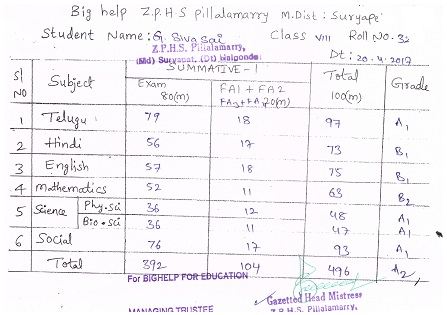 Big help Z.P.H.S pillalamarry M.Dist : Suryape
Student Name: G. Siva Sai Class VIII Roll No. 32
Z.P.H.S. Pillalamarry,
(Md) Suryapet, (Dt) Nalgonda Dt: 20.4.2017
Sl No Subject SUMMATIVE-1 Total 100(m) Grade
Exam 80(m) FA1 + FA2 FA3+FA4 20(m)
1 Telugu 79 18 97 A1
2 Hindi 56 17 73 B1
3 English 57 18 75 B1
4 mathematics 52 11 63 B2
5 Science Phy.Sci 36 12 48 A1
Bio.Sci 36 11 47 A1
6 Social 76 17 93 A1
Total 392 104 496 A2
For BIGHELP FOR EDUCATION
MANAGING TRUSTEE
Gazetted Head Mistress
Z.P.H.S. Pillalamarry,